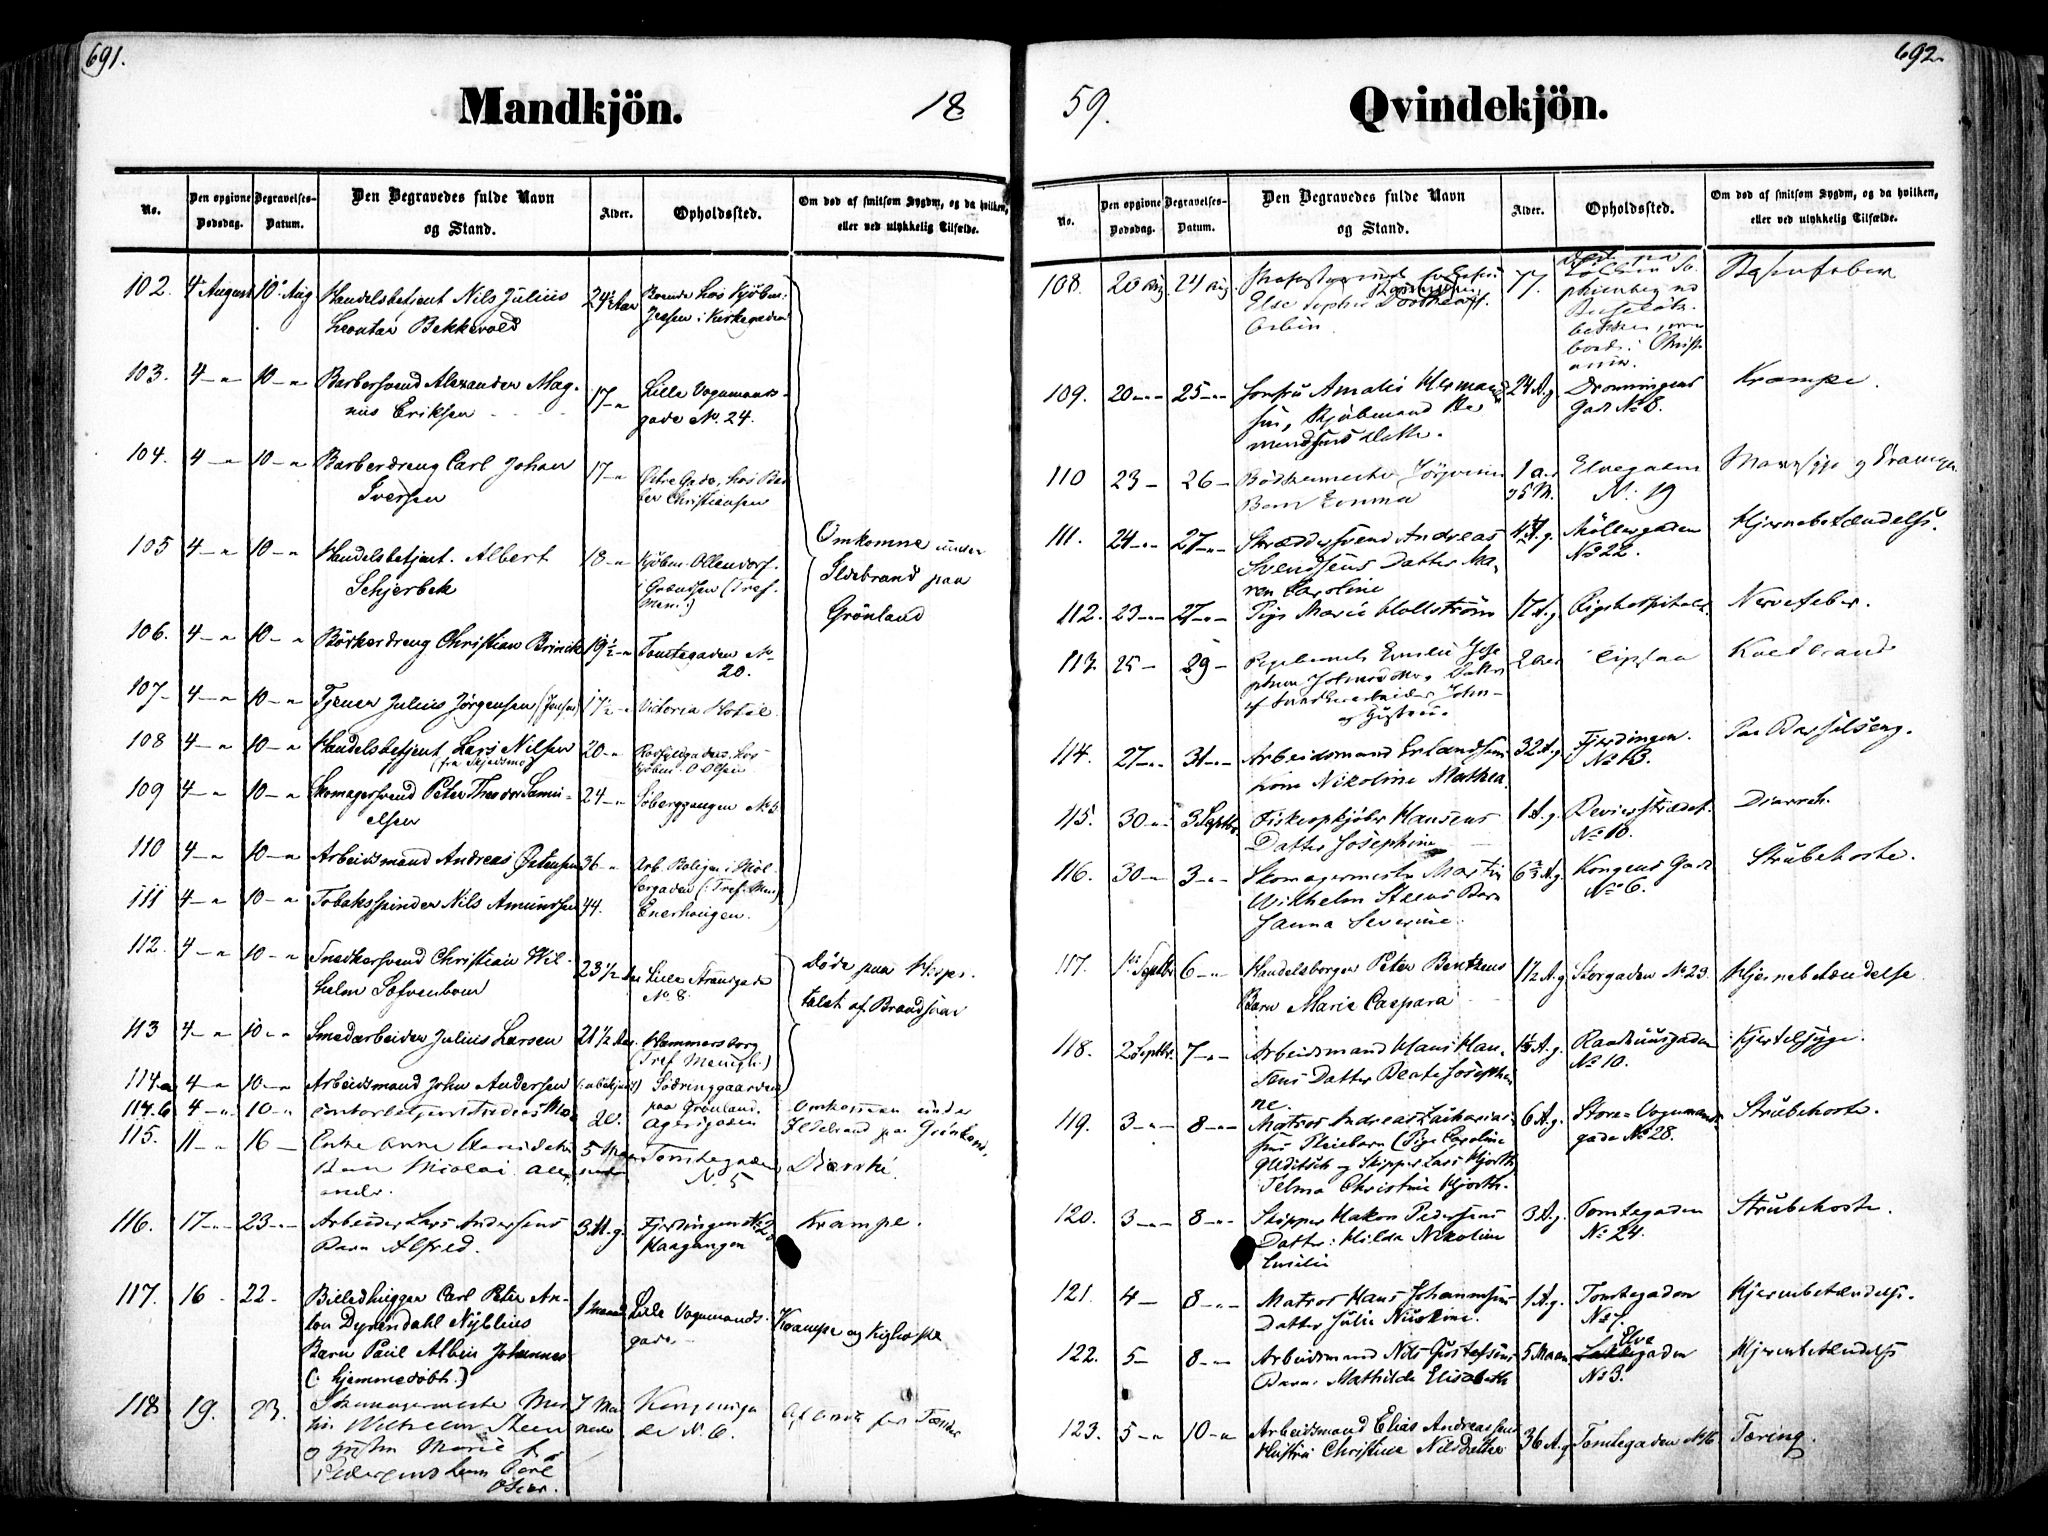 691.
Mandkjön.
18
No.
Den opgivne Dödsdag.
Begravelses-Datum.
Den Begravedes fulde Navn og Stand.
Alder.
Opholdssted.
Om död af smitsom Sygdom, og da hvilken, eller ved ulykkelig Tilfælde.
102. 4 August 10 Aug Handelsbetjent Nils Julius
Bekkevold
24½ Aar
i Kirkegaden
103. 4 10 Barbersvend Alexander Mag-
nus Eriksen
17
Lille Vognmands-
gade No. 24.
104. 4 10 Barberdreng Carl Johan
Iversen
17
Østre Gade, hos Bar
ber Christiansen
105 4 10 Handelsbetjent Albert
Schjerbek
18
Kjöbm. Ollendorf.
i Grændsen (Tref.
Men.)
Omkomne under
Ildebrand paa
Grönland
106. 4 10 Bödkerdreng Christian Brinck
19½
Tomtegaden No
20.
107 4 10 Tjener Julius Jørgensen (Jensen)
17½
Victoria Hotel
108 4 10 Handelsbetjent Lars Nilsen
(fra Skjedsmo)
20
hos
Kjöbm. O Olsen
109 4 10 Skomagersvend Peter Theodor Samu-
elsen
24
Söberggangen No 5
110 4 10 Arbeidsmand Andreas Østensen
36
Arb. Boliger i Möl-
lergaden (Tref. Men)
111 4 10 Tobaksspinder Nils Amundsen
44.
Enerhaugen.
112. 4 10 Snedkersvend Christian Wil-
helm Sofvenbom
23½ Aar
Lille Strandgade
No 8.
Döde paa Hospi-
talet af Brandsaar
113 4 10 Smedarbeider Julius Larsen
21½ Aar.
Hammersborg
(Tref Menigh.)
114a 4 10 Arbeidsmand John Andersen
(ubekjendt)
Sörringgaarden
paa Grönland.
114.b 4 10 Contorbetjent
20.
Agersgaden
Omkommen under
Ildebrand paa Grönland.
115. 11 16 Enke Anne
Barn Nicolai Alex
ander.
5 Maa
neder
Tomtegaden
No. 5
Diarrhé.
116. 17 23 Arbeider Lars Andersens
Barn Alfred.
3 A. g.
Fjerdingen No 2
Haagangen
Krampe.
117. 16 22 Billedhugger Carl Peter An-
ton Dyrendahl Nyblins
Barn Paul Albin Johannes
(: hjemmedöbt.)
1 maaned
Lille Vognmands-
gade
Krampe og Kighoste
118 19. 23. Skomagermester Mar
tin Wilhelm Steen
og Hustru Marie
Barn Carl
Oscar.
7 Maa
neder
Kongensga
de No. 6.
692.
59.
Qvindekjön.
No.
Den opgivne Dödsdag.
Begravelses-Datum.
Den Begravedes fulde Navn og Stand.
Alder.
Opholdssted.
Om död af smitsom Sygdom, og da hvilken, eller ved ulykkelig Tilfælde.
108. 20 Aug 24 Aug
Else Sophie Dorthea
77.
boende i Christi
ania.
109. 20 25 Jomfru Amalie Hermand
sen, Kjöbmand Her
mandsens Datter.
24 A. g.
Dronningens
Gade No 8.
Krampe.
110 23 26 Bödkermester Jörgensens
Barn Emma
1 a.
5 M.
Elvegaden
No: 19
111. 24 27 Skræddersvend Andreas
Svendsens Datter Ma-
ren Caroline
Möllergaden
No 22.
Hjernebetændelse.
112. 23 27 Pige Marie Hallström
17 A. g.
Rigshospitalet
Nervefeber.
113. 25 29 Pigebarnet Emilie Jose
phine
2 aar
Koldbrand
114. 27 31 Arbeidsmand Erlandsens
Kone Nikoline Mathea.
32 A. g.
Fjerdingen.
No 13.
Paa Barselseng.
115. 30 3 Septbr. Fiskeopkjöber Hansens
Datter Josephine
1 A. g.
Reviersstrædet.
No 10.
Diarreh.
116. 30 3 Skomagermester Martin
Wilhelm Steens Barn
Hanna Severine.
Kongens Gade
No 6.
Strubehoste.
117. 1ste Septbr 6 Handelsborger Peter Bentzens
Barn Marie Caspara
1½ A. g
Storgaden No 23.
Hjernebetændelse.
118. 2 Septbr. 7 Arbeidsmand Hans Han-
sens Datter Beate Josephi
ne.
Raadhuusgaden
No 10.
Kjertelsyge.
119. 3 8 Matros Andreas Zacharias-
sens Pleiebarn (Pige Caroline
og Skipper Lars Hjorth)
Telma Christine Hjorth.
6 A. g.
Store Vognmands-
gade No 28.
Strubehoste.
120. 3 8 Skipper Hakon Pedersens
Datter: Hilda Nikoline
Emilie
3 A. g.
Tomtegaden
No 24.
Strubehoste.
121. 4 8 Matros Hans Johannesens
Datter Julie
1 A. g.
Tomtegaden
No 7.
Hjernebetændelse.
122. 5 8 Arbeidsmand Nils Gustafsens
Barn: Mathilde Elisabeth
5 Maan
Elve
gaden
No 3.
Hjernebetændelse
123. 5 10 Arbeidsmand Elias Andreassens
Hustru Christine Nilsdatter
36 A. g
Tomtegaden No 16
Tæring.